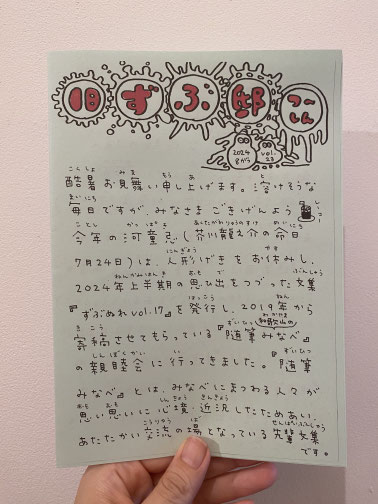 旧ずふ邸つーしん
2024 8がつ vol.23
酷暑お見舞い申し上げます。溶けそうな
毎日ですが、みなさまごきげんよう
今年の河童忌(芥川龍之介の命日
7月24日)は、人形げきをお休みし、
2024年上半期の思ひ出をつづった文集
『ずぶぬれvol.17』を発行し、2019年から
寄稿させてもらっている『随筆みなべ』
の親睦会に行ってきました。『随筆
みなべ』とは、みなべにまつわる人々が
思い思いに心境・近況したためあい、
あたたかい交流の場となっている先輩文集
です。